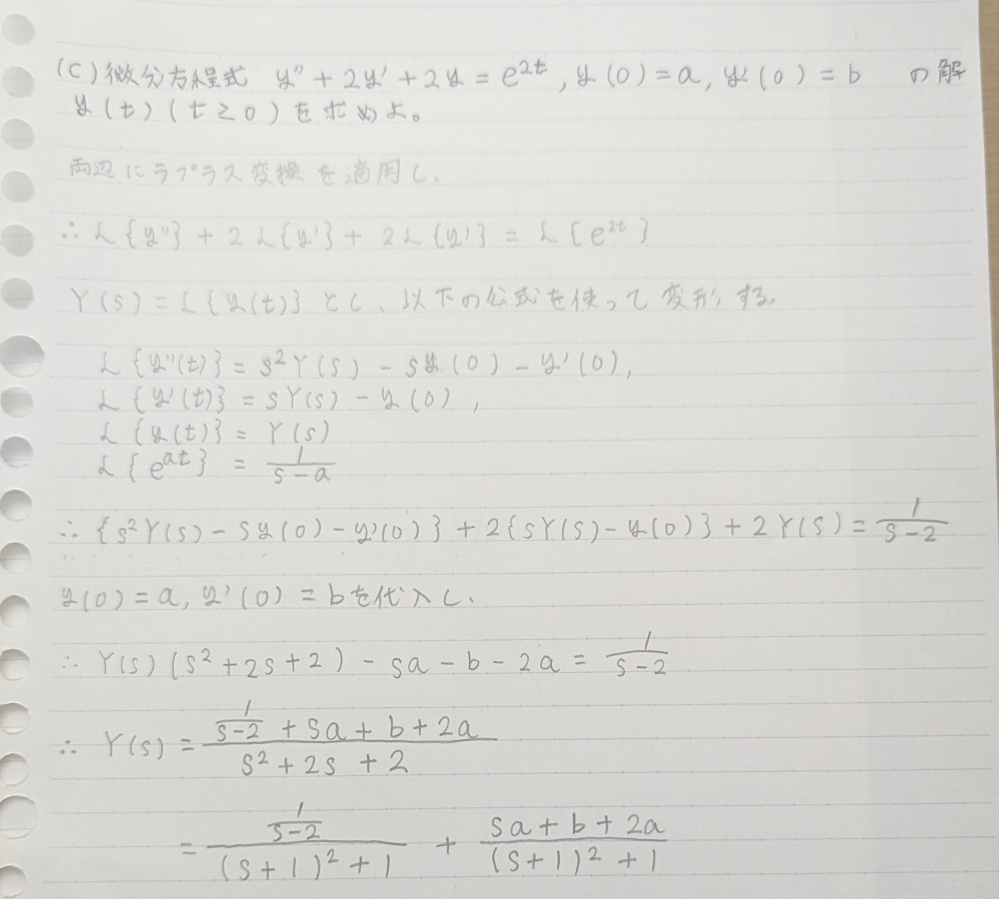 (C) 微分方程式 y'' + 2y' + 2y = e^{2t}, y(0) = a, y'(0) = b の解
y(t) (t ≥ 0) を求めよ。
両辺にラプラス変換を適用し、
∴ ℒ{y''} + 2ℒ{y'} + 2ℒ{y'} = ℒ{e^{2t}}
Y(s) = ℒ{y(t)} とし、以下の公式を使って変形する。
ℒ{y''(t)} = s²Y(s) - sy(0) - y'(0),
ℒ{y'(t)} = sY(s) - y(0),
ℒ{y(t)} = Y(s)
ℒ{e^{at}} = \frac{1}{s-a}
∴ {s²Y(s) - sy(0) - y'(0)} + 2{sY(s) - y(0)} + 2Y(s) = \frac{1}{s-2}
y(0) = a, y'(0) = b を代入し、
∴ Y(s)(s² + 2s + 2) - sa - b - 2a = \frac{1}{s-2}
∴ Y(s) = \frac{\frac{1}{s-2} + sa + b + 2a}{s² + 2s + 2}
= \frac{\frac{1}{s-2}}{(s+1)² + 1} + \frac{sa + b + 2a}{(s+1)² + 1}